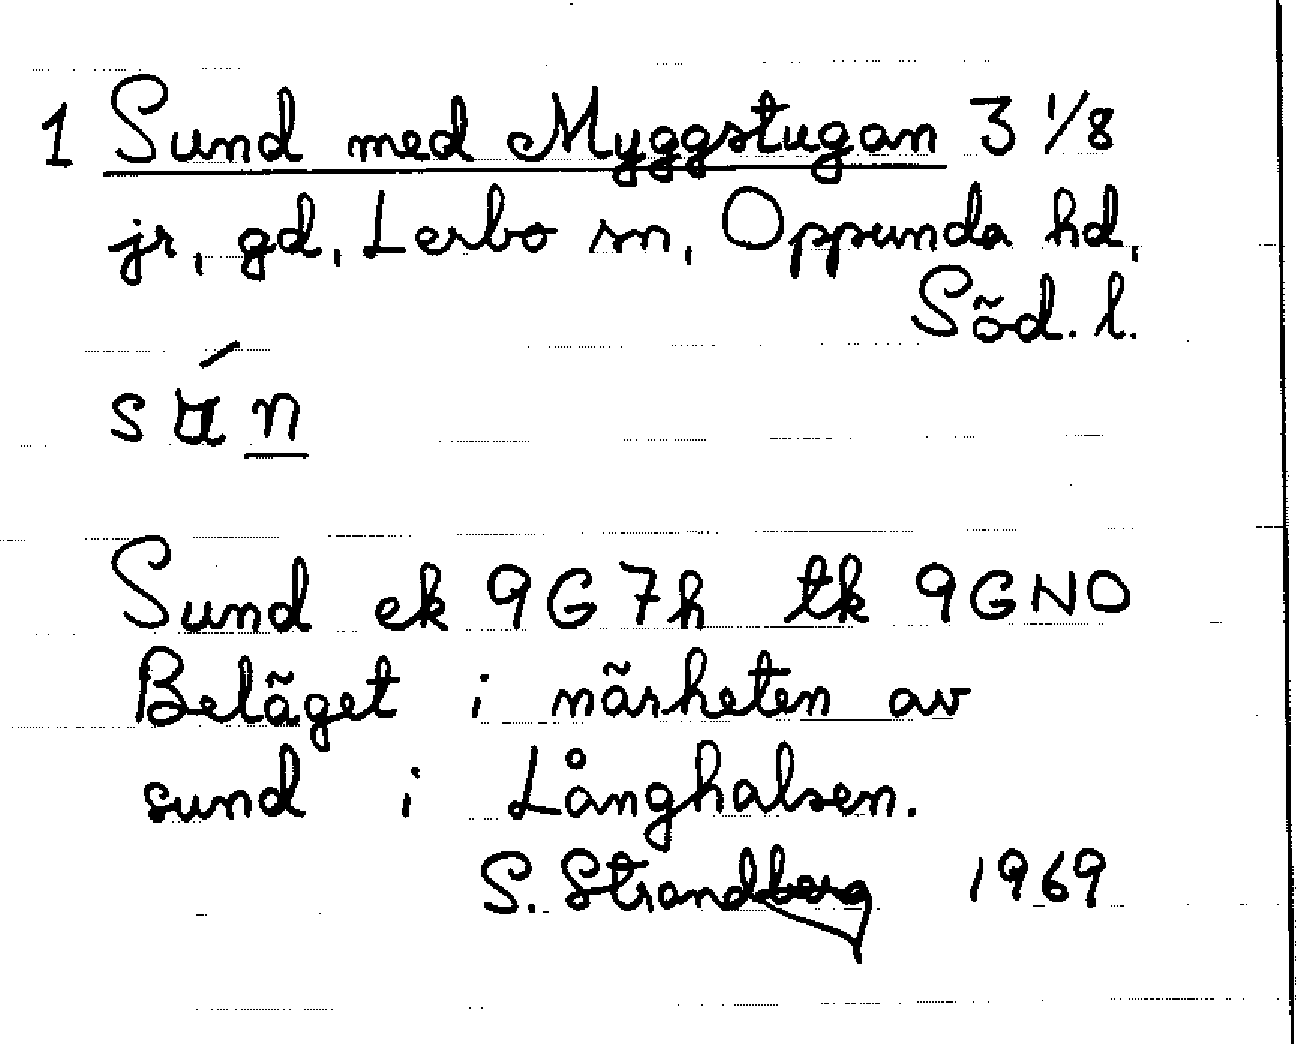 1 Sund med Myggstugan 3 1/8
jr, gd, Lerbo sn, Oppunda hd,
Söd. l.
Sund ek 9G7h tk 9GNO
Beläget i närheten av
sund i Långhalsen.
S. Strandberg 1969